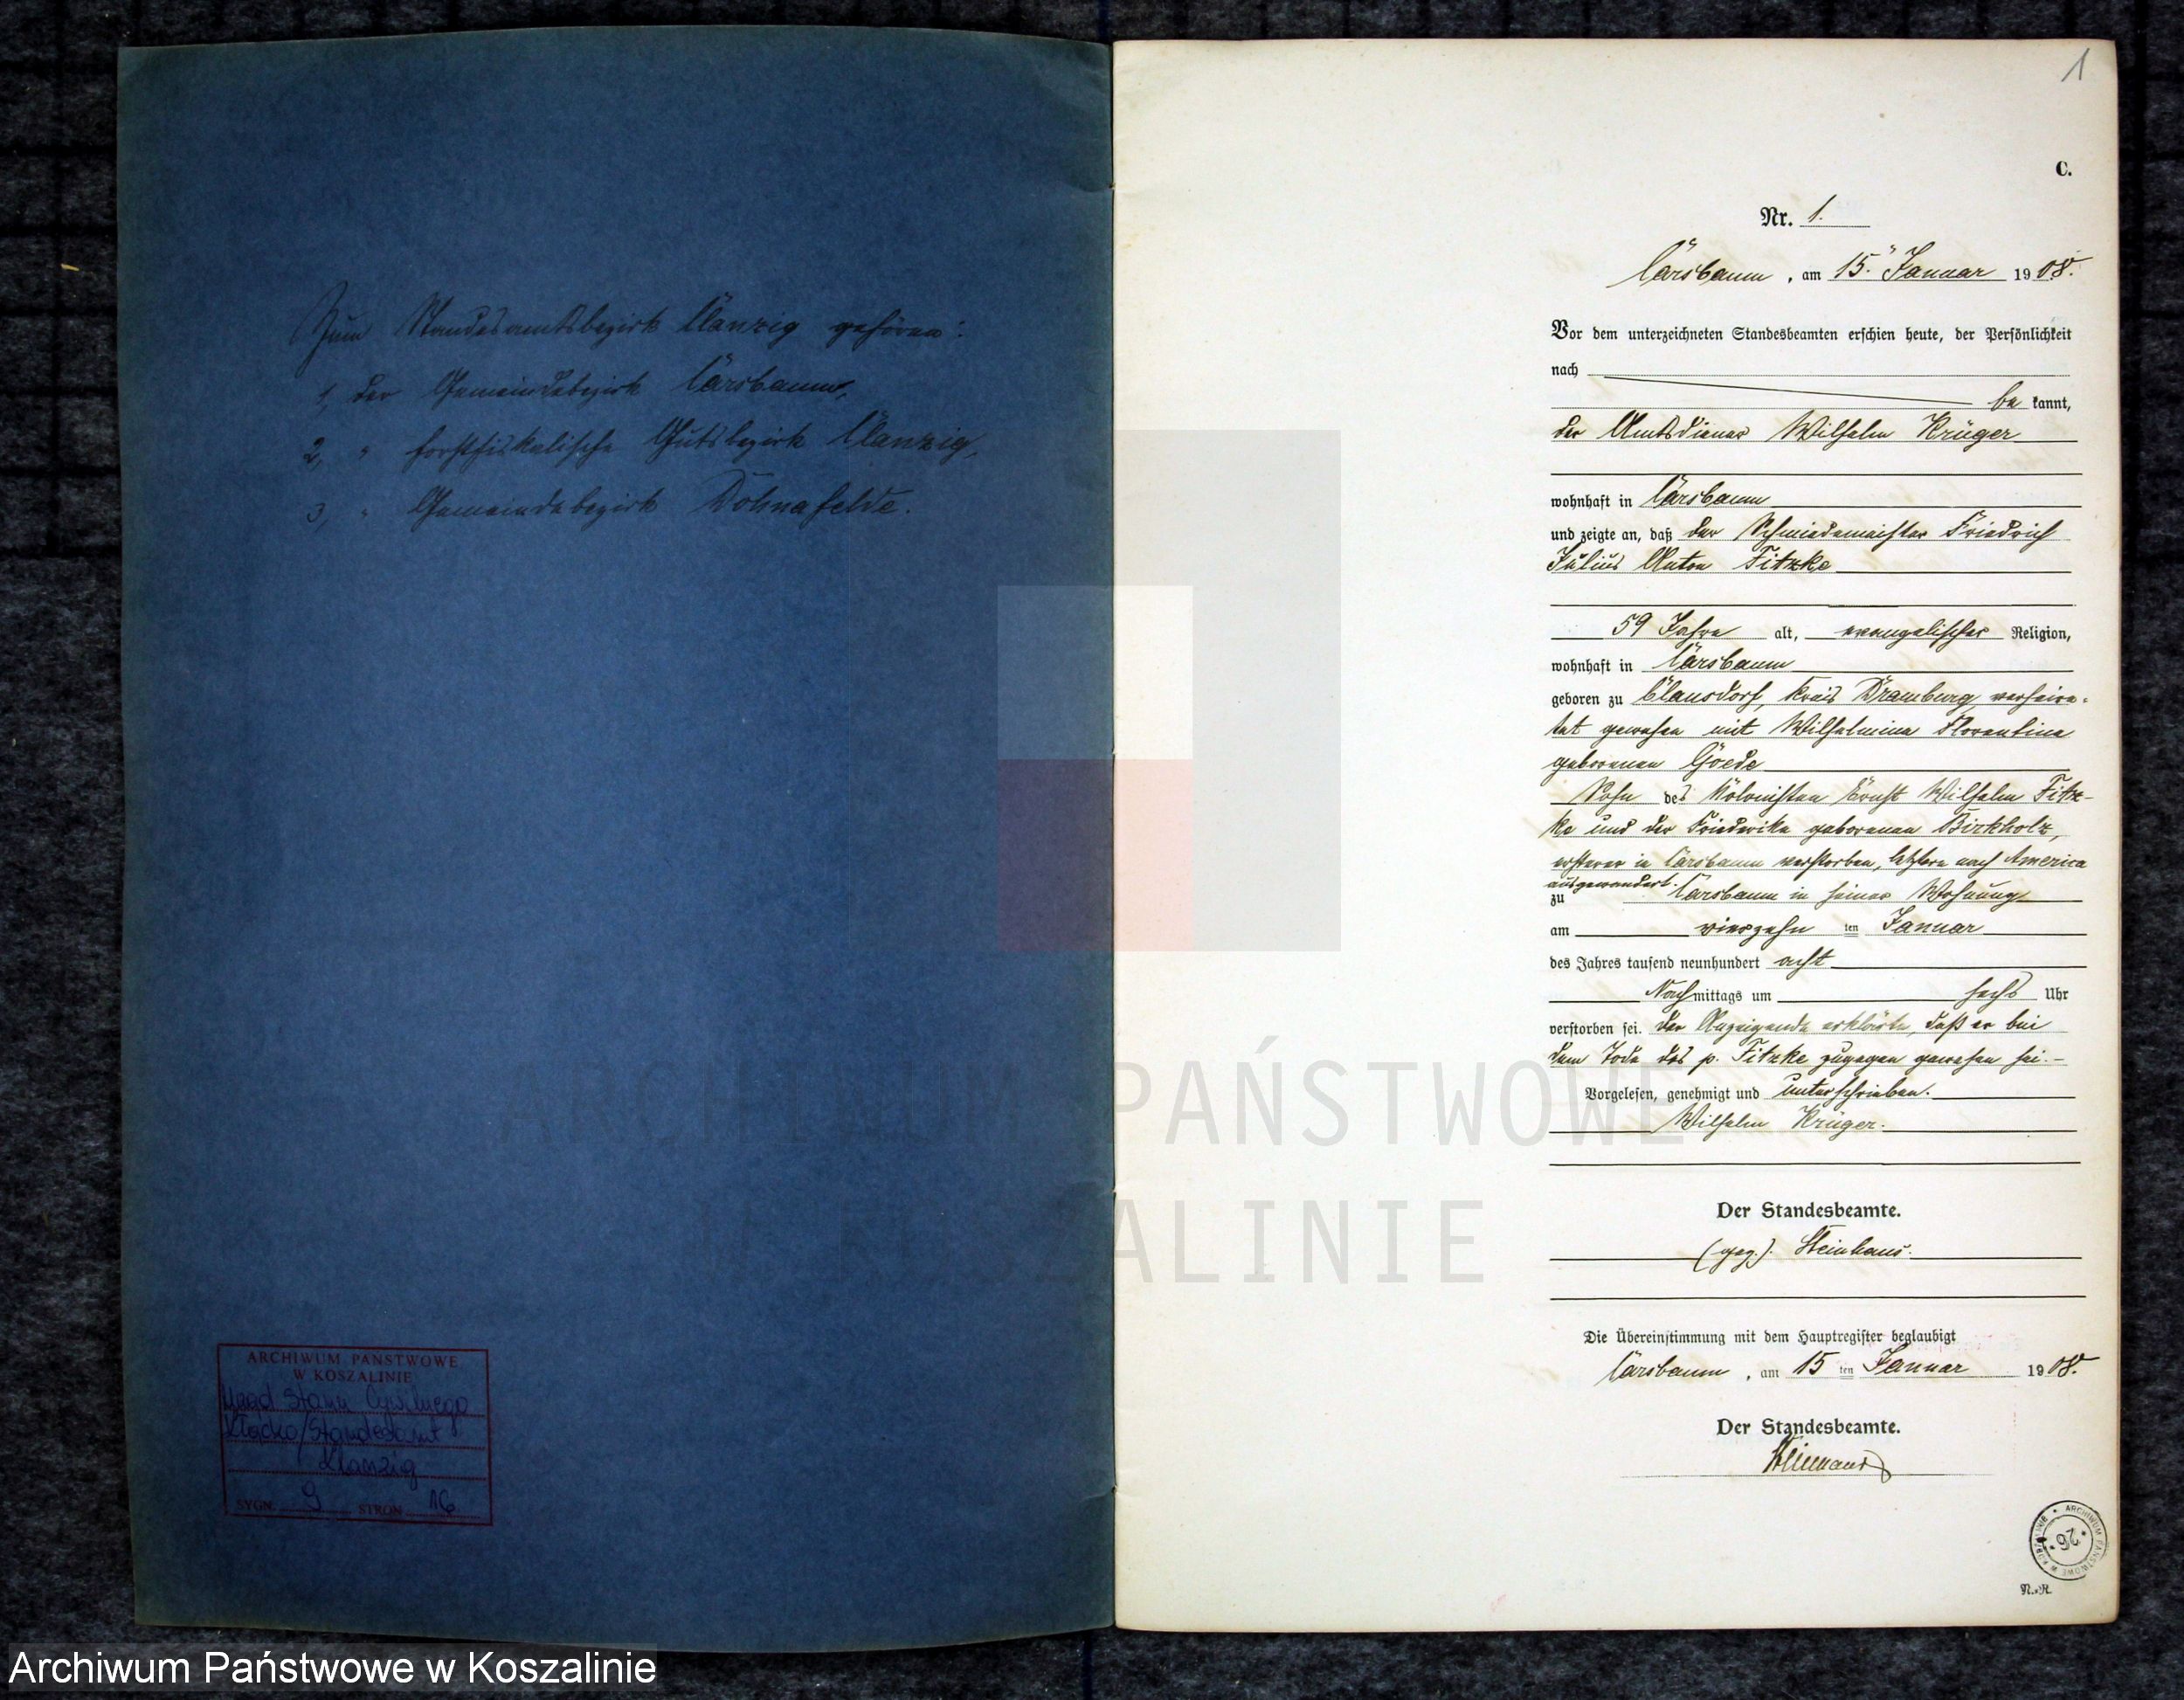 Zum Standesamtsbezirk Clanzig gehören:
1, der Gemeindebezirk Carsbaum,
2, " forstfiskalische Gutsbezirk Clanzig,
3, " Gemeindebezirk Dohnafelde.
ARCHIWUM PAŃSTWOWE
W KOSZALINIE
Urząd Stanu Cywilnego
Kłącko/Standesamt
Klanzig
SYGN. 9 STRON 16
1
C.
Nr. 1.
Carsbaum, am 15. Januar 1908.
Vor dem unterzeichneten Standesbeamten erschien heute, der Persönlichkeit
nach
be kannt,
der Amtsdiener Wilhelm Krüger
wohnhaft in Carsbaum
und zeigte an, daß der Schmiedemeister Friedrich
Julius Anton Fitzke
59 Jahre alt, evangelischer Religion,
wohnhaft in Carsbaum
geboren zu Clausdorf, Kreis Dramburg, verheira-
tet gewesen mit Wilhelmine Florentine
geborenen Goede
Sohn des Kolonisten Ernst Wilhelm Fitz-
ke und der Friederike geborenen Birkholz,
ersterer in Carsbaum verstorben, letztere nach America
ausgewandert.
zu Carsbaum in seiner Wohnung
am vierzehn ten Januar
des Jahres tausend neunhundert acht
Nachmittags um sechs Uhr
verstorben sei. Der Anzeigende erklärte, daß er bei
dem Tode des p. Fitzke zugegen gewesen sei.-
Vorgelesen, genehmigt und unterschrieben.
Wilhelm Krüger.
Der Standesbeamte.
(gez.). Steinhaus.
Die Übereinstimmung mit dem Hauptregister beglaubigt
Carsbaum, am 15 ten Januar 1908.
Der Standesbeamte.
Steinhaus
ARCHIWUM PAŃSTWOWE W KOSZALINIE
* 26 *
N.-R.
ARCHIWUM PAŃSTWOWE
W KOSZALINIE
Archiwum Państwowe w Koszalinie